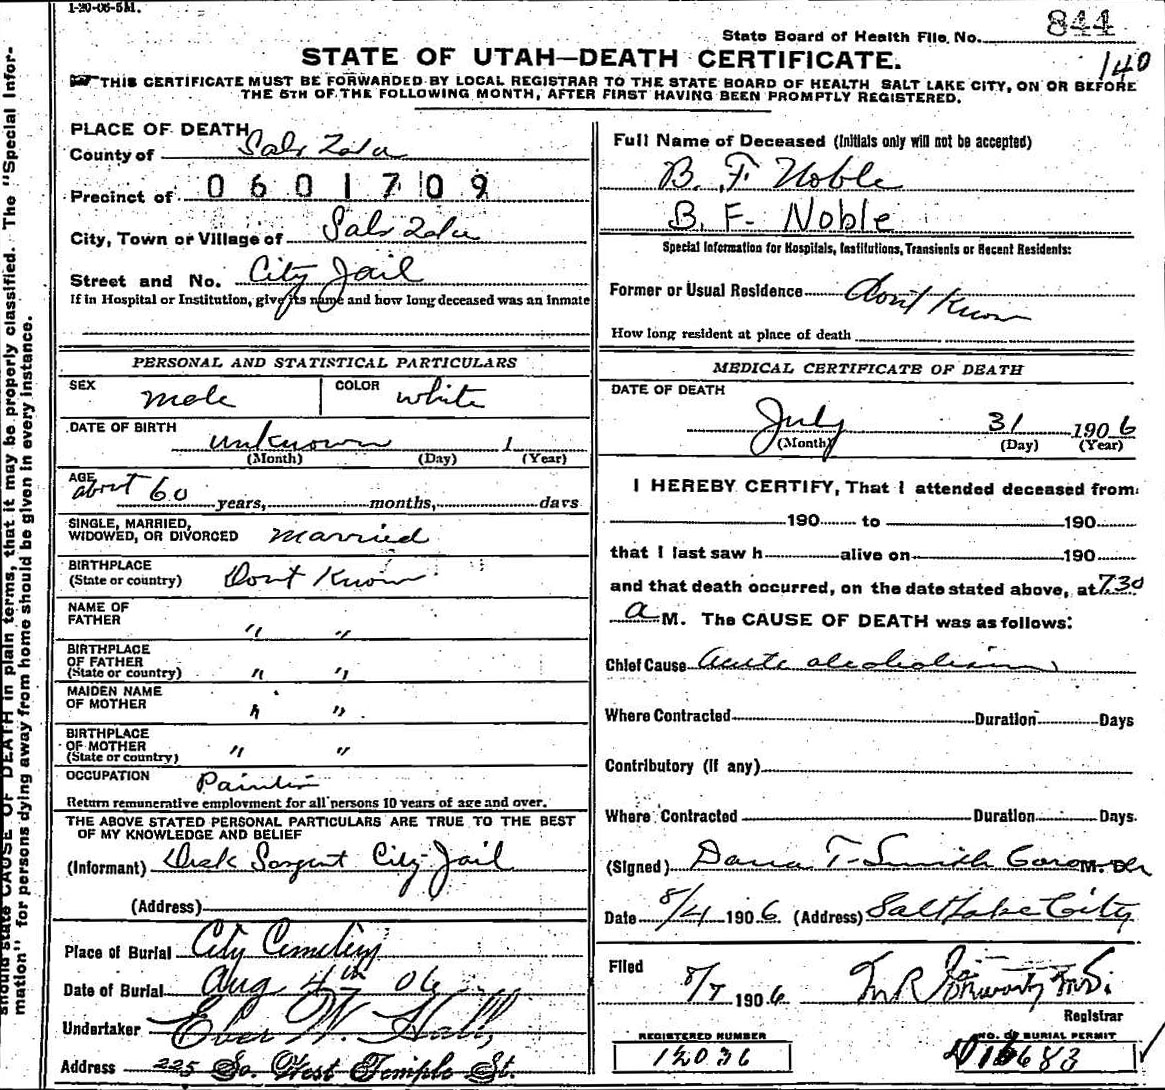 1-20-06-5M.
State Board of Health File No. 844
STATE OF UTAH—DEATH CERTIFICATE.
140
THIS CERTIFICATE MUST BE FORWARDED BY LOCAL REGISTRAR TO THE STATE BOARD OF HEALTH SALT LAKE CITY, ON OR BEFORE
THE 5TH OF THE FOLLOWING MONTH, AFTER FIRST HAVING BEEN PROMPTLY REGISTERED.
should state CAUSE OF DEATH in plain terms, that it may be properly classified. The "Special Infor-
mation" for persons dying away from home should be given in every instance.
PLACE OF DEATH
County of Salt Lake
Precinct of 0601709
City, Town or Village of Salt Lake
Street and No. City Jail
If in Hospital or Institution, give its name and how long deceased was an inmate
PERSONAL AND STATISTICAL PARTICULARS
SEX male COLOR white
DATE OF BIRTH
unknown 1
(Month) (Day) (Year)
AGE
about 60 years, months, days
SINGLE, MARRIED,
WIDOWED, OR DIVORCED married
BIRTHPLACE
(State or country) Dont Know
NAME OF
FATHER " "
BIRTHPLACE
OF FATHER
(State or country) " "
MAIDEN NAME
OF MOTHER " "
BIRTHPLACE
OF MOTHER
(State or country) " "
OCCUPATION Painter
Return remunerative employment for all persons 10 years of age and over.
THE ABOVE STATED PERSONAL PARTICULARS ARE TRUE TO THE BEST
OF MY KNOWLEDGE AND BELIEF
(Informant) Desk Sargent City Jail
(Address)
Place of Burial City Cemetery
Date of Burial Aug 4th 06
Undertaker Eber W. Hall
Address 225 So. West Temple St.
Full Name of Deceased (Initials only will not be accepted)
B. F Noble
B. F. Noble
Special Information for Hospitals, Institutions, Transients or Recent Residents:
Former or Usual Residence dont Know
How long resident at place of death
MEDICAL CERTIFICATE OF DEATH
DATE OF DEATH
July 31 1906
(Month) (Day) (Year)
I HEREBY CERTIFY, That I attended deceased from
190 to 190
that I last saw h alive on 190
and that death occurred, on the date stated above, at 730
a M. The CAUSE OF DEATH was as follows:
Chief Cause acute alcoholism
Where Contracted Duration Days
Contributory (if any)
Where Contracted Duration Days.
(Signed) Dana T. Smith Coroner M. D.
Date 8/4 1906 (Address) Salt Lake City
Filed
8/7 1906 M.D.
Registrar
REGISTERED NUMBER
12036
NO. OF BURIAL PERMIT